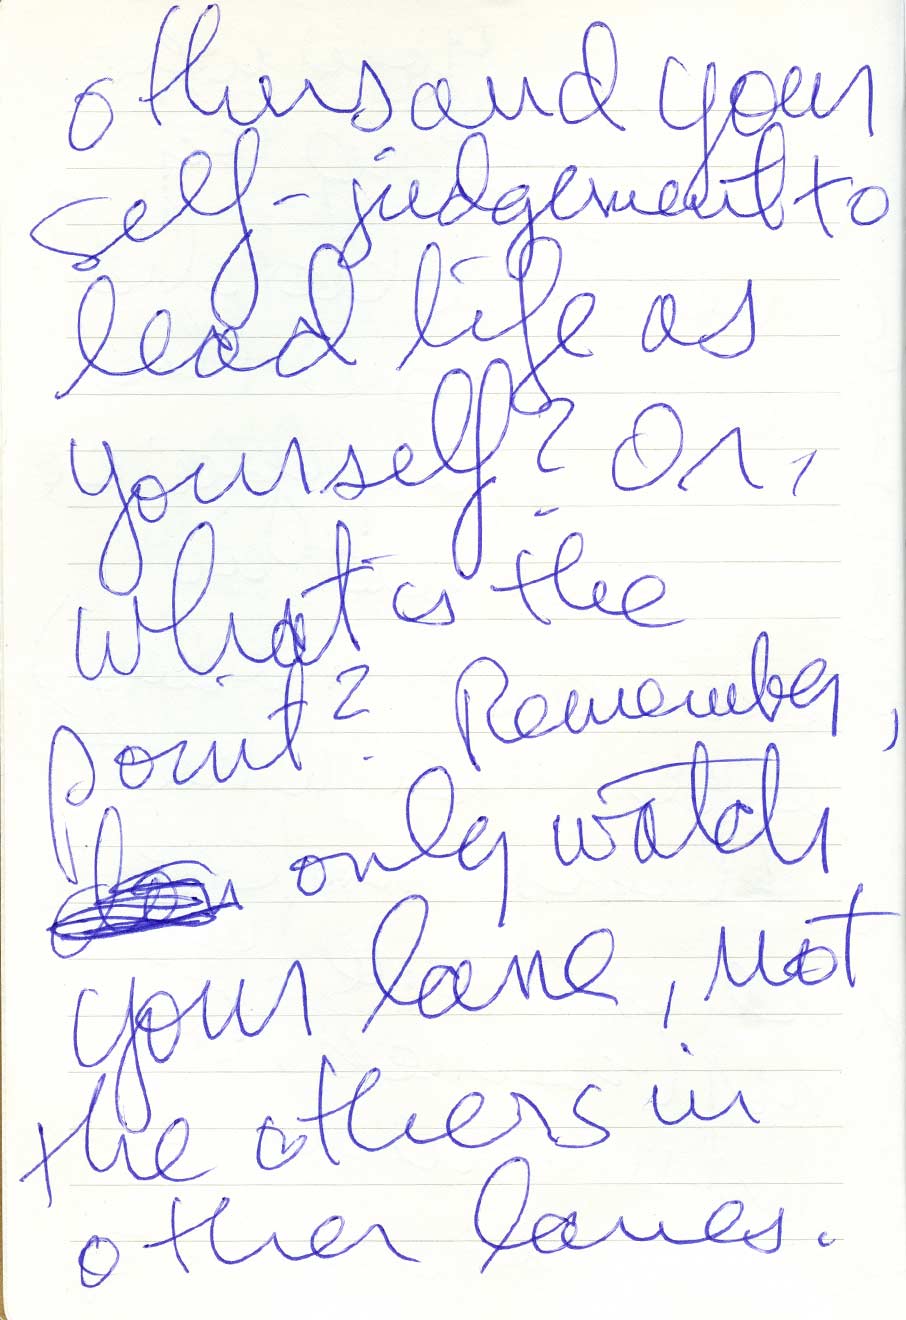 others and your
self-judgement to
lead life as
yourself? Or,
what is the
point? Remember,
only watch
your lane, not
the others in
other lanes.